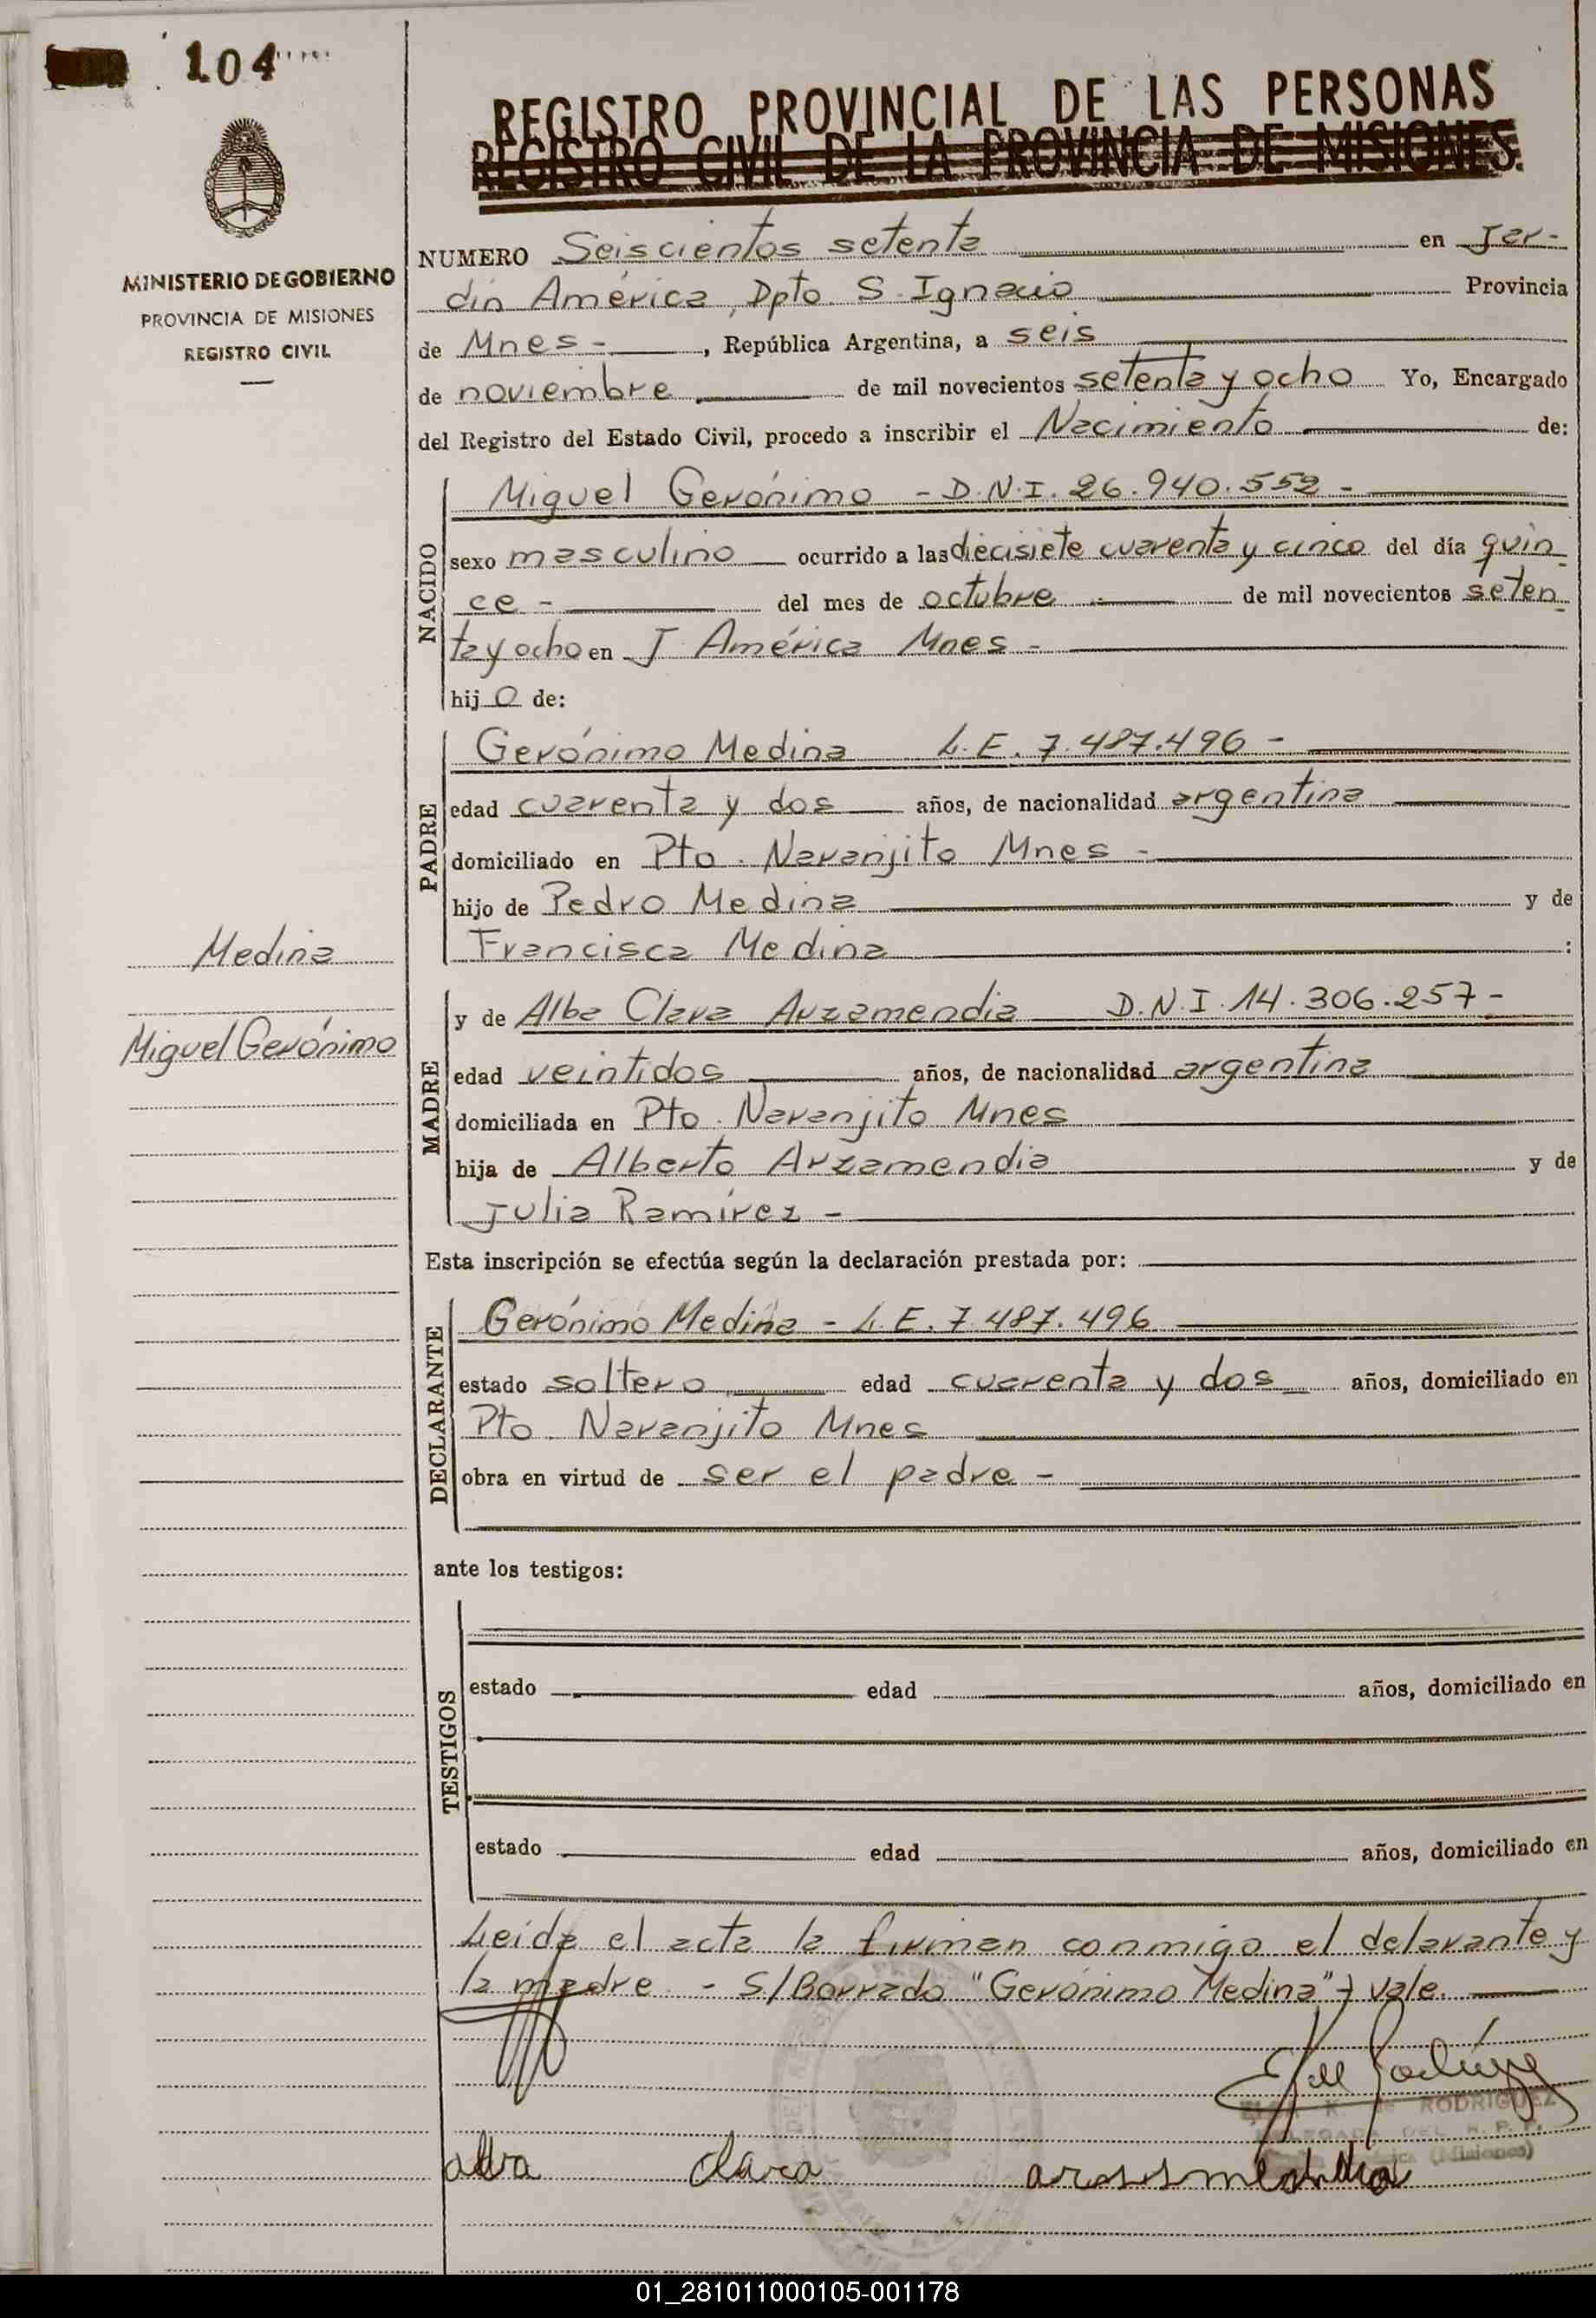 104
REGISTRO PROVINCIAL DE LAS PERSONAS
REGISTRO CIVIL DE LA PROVINCIA DE MISIONES
MINISTERIO DE GOBIERNO
PROVINCIA DE MISIONES
REGISTRO CIVIL
NUMERO Seiscientos setenta en Jar-
din América, Dpto. S. Ignacio Provincia
de Mnes-, República Argentina, a seis
de noviembre de mil novecientos setenta y ocho Yo, Encargado
del Registro del Estado Civil, procedo a inscribir el Nacimiento de:
NACIDO
Miguel Gerónimo - D.N.I. 26.940.552-
sexo masculino ocurrido a las diecisiete cuarenta y cinco del día quin
ce - del mes de octubre de mil novecientos seten
ta y ocho en J. América Mnes -
hijo de:
PADRE
Gerónimo Medina L.E. 7.487.496 -
edad cuarenta y dos años, de nacionalidad argentina
domiciliado en Pto. Naranjito Mnes -
hijo de Pedro Medina y de
Francisca Medina :
Medina
Miguel Gerónimo
MADRE
y de Alba Clara Arzamendia D.N.I. 14.306.257-
edad veintidos años, de nacionalidad argentina
domiciliada en Pto. Naranjito Mnes
hija de Alberto Arzamendia y de
Julia Ramírez -
Esta inscripción se efectúa según la declaración prestada por:
DECLARANTE
Gerónimo Medina - L.E. 7.487.496
estado soltero edad cuarenta y dos años, domiciliado en
Pto. Naranjito Mnes
obra en virtud de ser el padre -
ante los testigos:
TESTIGOS
estado edad años, domiciliado en
estado edad años, domiciliado en
Leida el acta la firman conmigo el delarante y
la madre. - S/Borrado "Gerónimo Medina" vale.
RODRIGUEZ
DELEGADA DEL R. P. P.
(Misiones)
alva clara
01_281011000105-001178